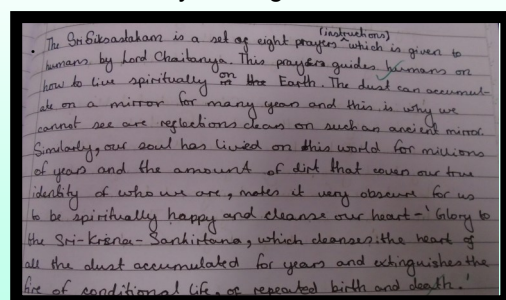 (instructions)
. The Sri Siksastakam is a set of eight prayers ^ which is given to
humans by Lord Chaitanya. This prayers guides humans on
how to live spiritually on the Earth. The dust can accumul-
ate on a mirror for many years and this is why we
cannot see are reflections clean on such an ancient mirror.
Similarly, our soul has livied on this world for millions
of years and the amount of dirt that cover our true
identity of who we are, makes it very obscure for us
to be spiritually happy and cleanse our heart - 'Glory to
the Sri-Krsna-Sankirtana, which cleanses the heart of
all the dust accumulated for years and extinguishes the
fire of conditional life, of repeated birth and death.'